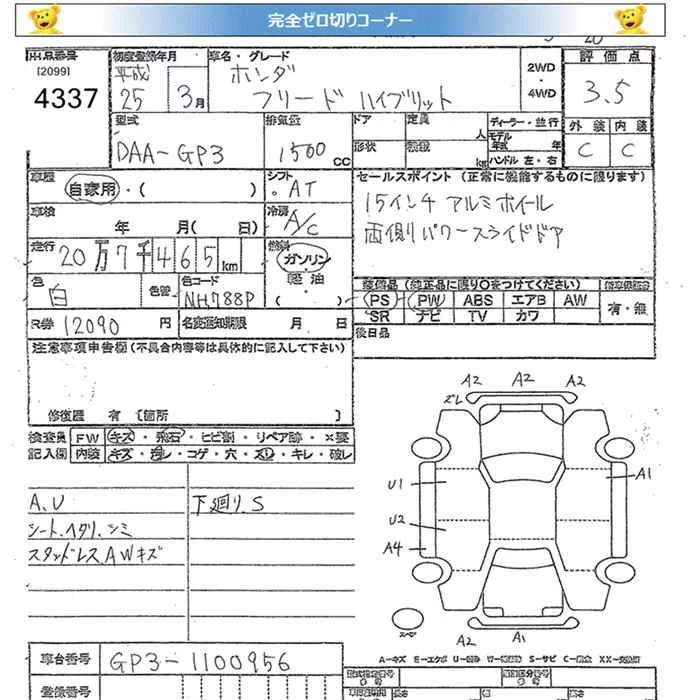 完全ゼロ切りコーナー
出品番号 [2099] 4337
初度登録年月 平成 25 3月
車名・グレード ホンダ フリード ハイブリット
2WD・4WD
評価点 3.5
型式 DAA-GP3
排気量 1500 CC
ドア 形状
定員 人
積載 kg
ディーラー・並行
モデル年式 年
ハンドル 左・右
外装 C 内装 C
車歴 自家用・( )
シフト AT
セールスポイント (正常に機能するものに限ります)
15インチ アルミホイール
両側パワースライドドア
車検 年 月( 日)
冷房 A/C
走行 20万7千465km
燃料 ガソリン・軽油・( )
色 白
色替
色コード NH788P
装備品 (純正品に限り○をつけてください)
PS PW ABS エアB AW
SR ナビ TV カワ
有・無
R券 12090 円
名変通知期限 月 日
後日品
注意事項申告欄 (不具合内容等は具体的に記入して下さい)
修復歴 有 〔箇所 〕
検査員記入欄
FW キズ・飛石・ヒビ割・リペア跡・×要
内装 キズ・コゲ・穴・スリ・キレ・破レ
A.U 下廻り.S
シート.ヘタリ.シミ
スタッドレスAWキズ
A2 A2 A2
ズレ
A1
U1
U2
A4
スペア
A2 A1
A-キズ E-エクボ S-サビ C-腐食 XX-交換済
車台番号 GP3-1100956
登録番号